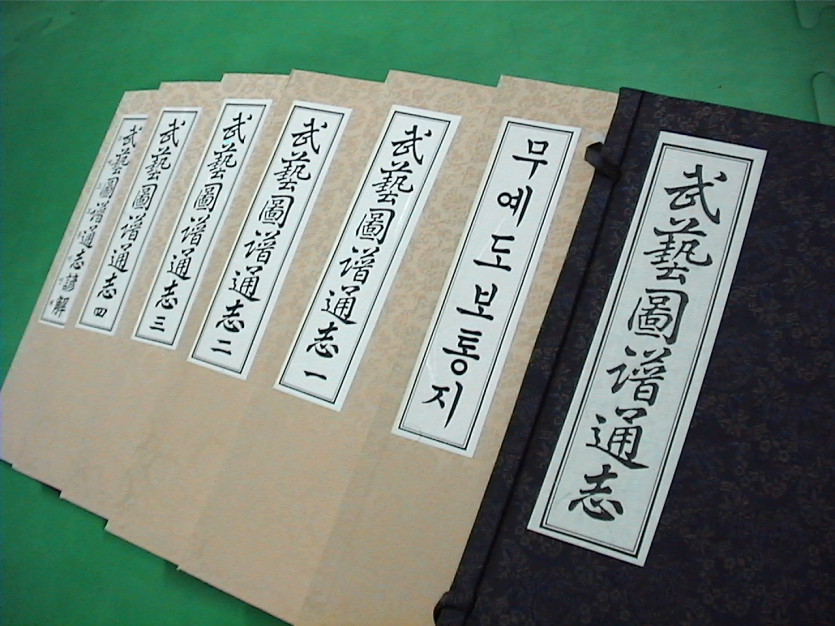 武藝圖譜通志
무예도보통지
武藝圖譜通志一
武藝圖譜通志二
武藝圖譜通志三
武藝圖譜通志四
武藝圖譜通志諺解